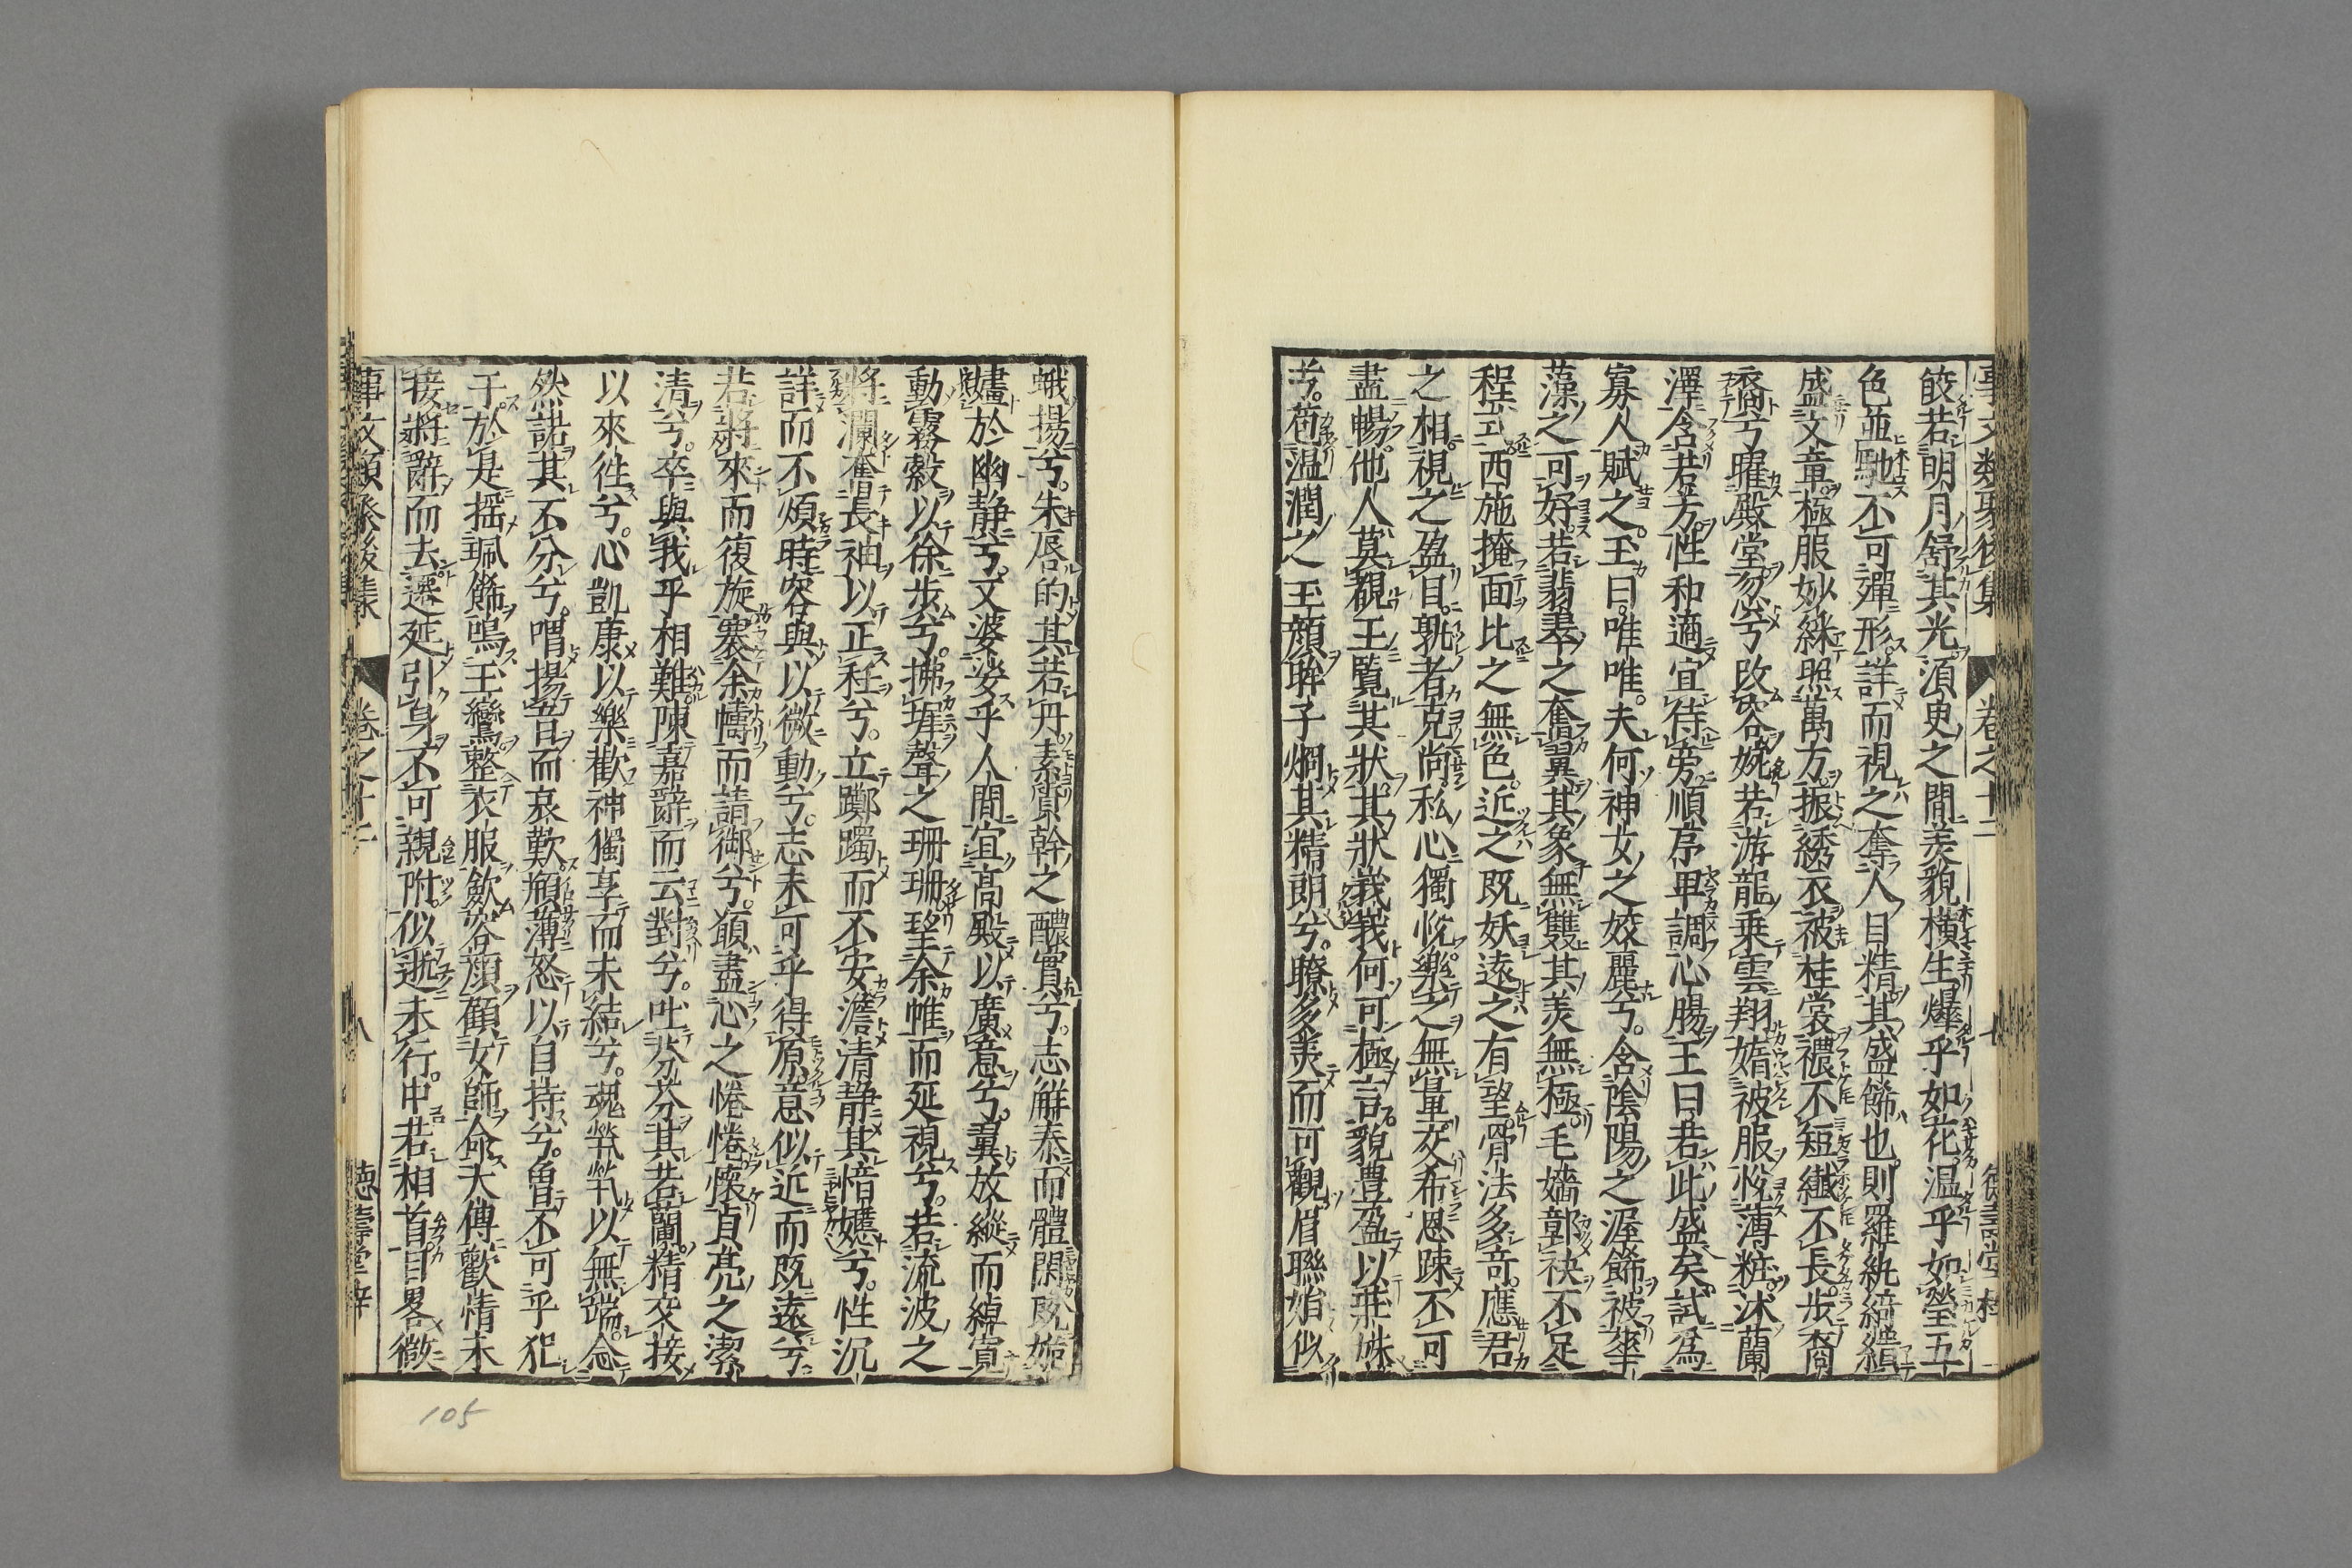 事文類聚後集 卷之十二 七 德壽堂梓
皎若明月舒其光須臾之間美貌橫生爗乎如花溫乎如瑩五
色並馳不可殫形詳而視之奪人目精其盛飾也則羅紈綺繢
盛文章極服妙綵照萬方振綉衣被袿裳禯不短纖不長步裔
裔兮曜殿堂忽兮改容婉若游龍乘雲翔婧被服侻薄粧沐蘭
澤含若芳性和適宜侍旁順序卑調心腸王曰若此盛矣試爲
寡人賦之玉曰唯唯夫何神女之姣麗兮含陰陽之渥飾被華
藻之可好若翡翠之奮翼其象無雙其美無極毛嬙鄣袂不足
程式西施掩面比之無色近之既妖遠之有望骨法多奇應君
之相視之盈目孰者克尚私心獨悅樂之無量交希恩踈不可
盡暢他人莫覩王覽其狀其狀峩峩何可極言貌豊盈以莊姝
兮苞溫潤之玉顔眸子烱其精朗兮瞭多美而可觀眉聯娟似
蛾揚兮朱唇的其若丹素質幹之醲實兮志解泰而體閑既姽
嫿於幽靜兮又婆娑乎人間宜高殿以廣意兮翼放縱而綽寬
動霧縠以徐步兮拂墀聲之珊珊望余帷而延視兮若流波之
將瀾奮長袖以正衽兮立躑躅而不安澹清静其愔嫕兮性沉
詳而不煩時容與以微動兮志未可乎得原意似近而既遠兮
若將來而復旋褰余幬而請御兮願盡心之惓惓懷貞亮之潔
清兮卒與我乎相難陳嘉辭而云對兮吐芬芬其若蘭精交接
以來徃兮心凱康以樂歡神獨享而未結兮魂煢煢以無端含
然諾其不分兮喟揚音而哀歎頩薄怒以自持兮曽不可乎犯
于於是揺珮飾鳴玉鸞整衣服歛容顔顧女師命太傅歡情未
接將辭而去遷延引身不可親附似逝未行中若相首目畧微
事文類聚後集 卷之十二 八 德壽堂梓
105